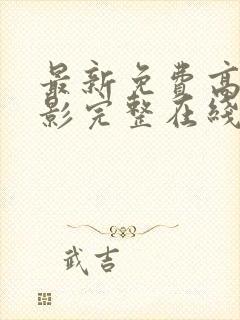 最新免费高
影完整在线
武吉